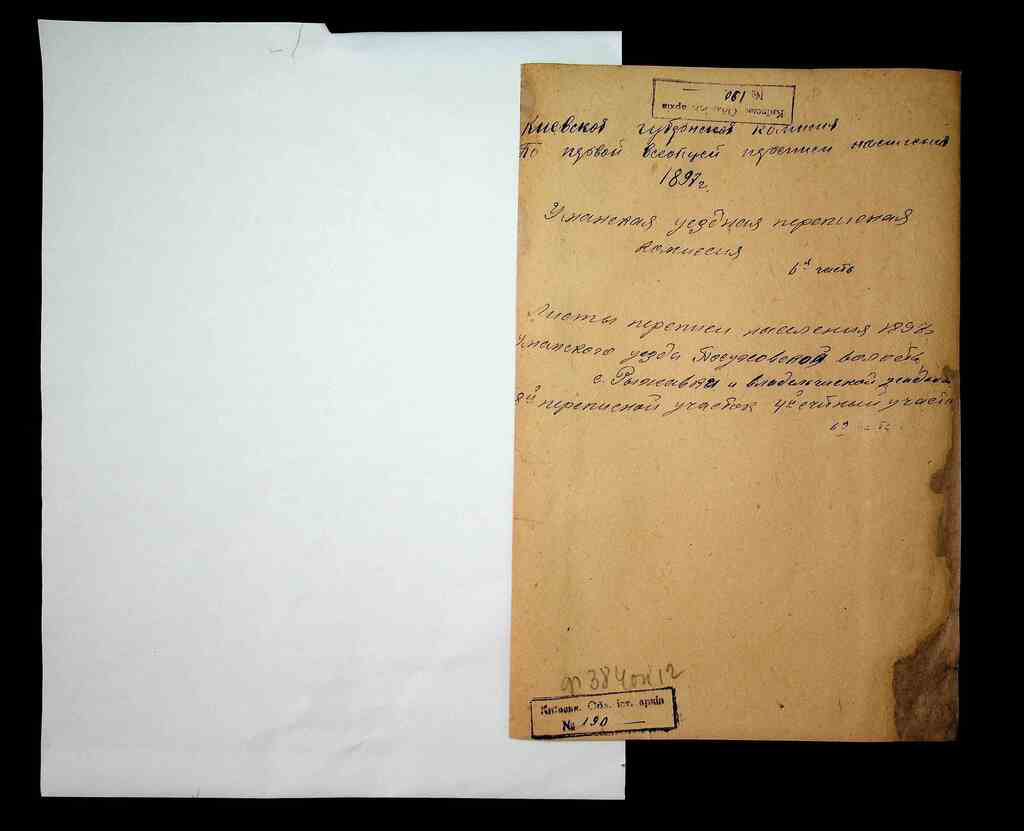 Київськ. Обл. іст. архів
№ 190
Киевской губернской комисия
По первой всеобщей переписи населения
1897 г.
Уманская уездная переписная
комиссия
6я часть
Листы переписи населения 1897 г
Уманского уезда Посуховской волость
с. Рыжавка и владельческой усадьбы
8й переписной участок 4й счетный участ
ф 384 оп 12
Київськ. Обл. іст. архів
№ 190 —